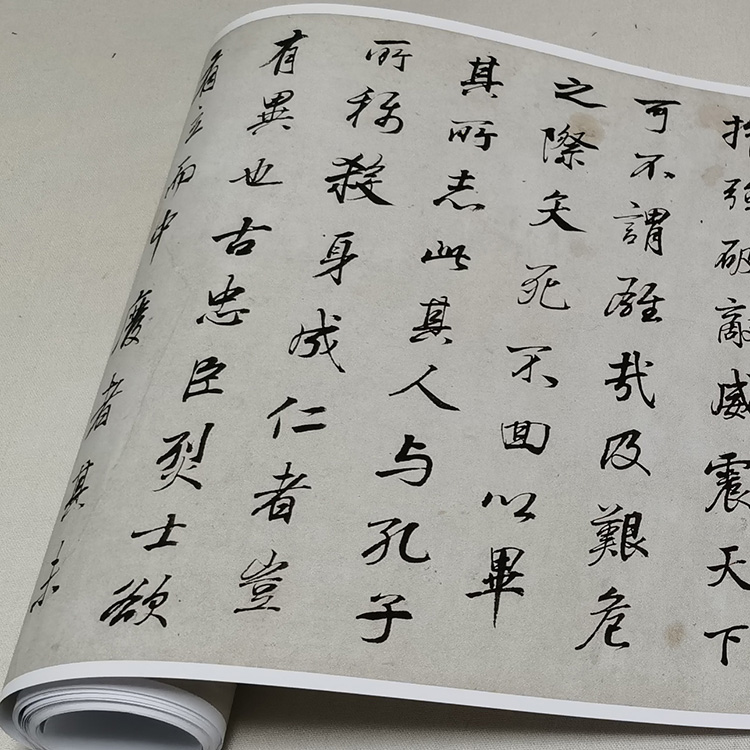 强破敵威震天下
可不謂哉及艱危
之際矢死不回以畢
其所志此其人与孔子
所称殺身成仁者豈
有異也古忠臣烈士欲
有立而中廢者其